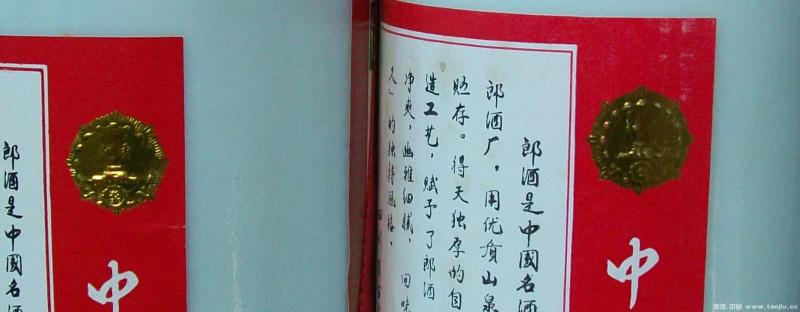 中
郎酒是中國名
中
郎酒是中國名酒
郎酒厂，用优质山泉
贮存。得天独厚的自
造工艺，赋予了郎酒
净爽，幽雅细腻，回味
久」的独特风格。
淘酒.中国 www.taojiu.cc